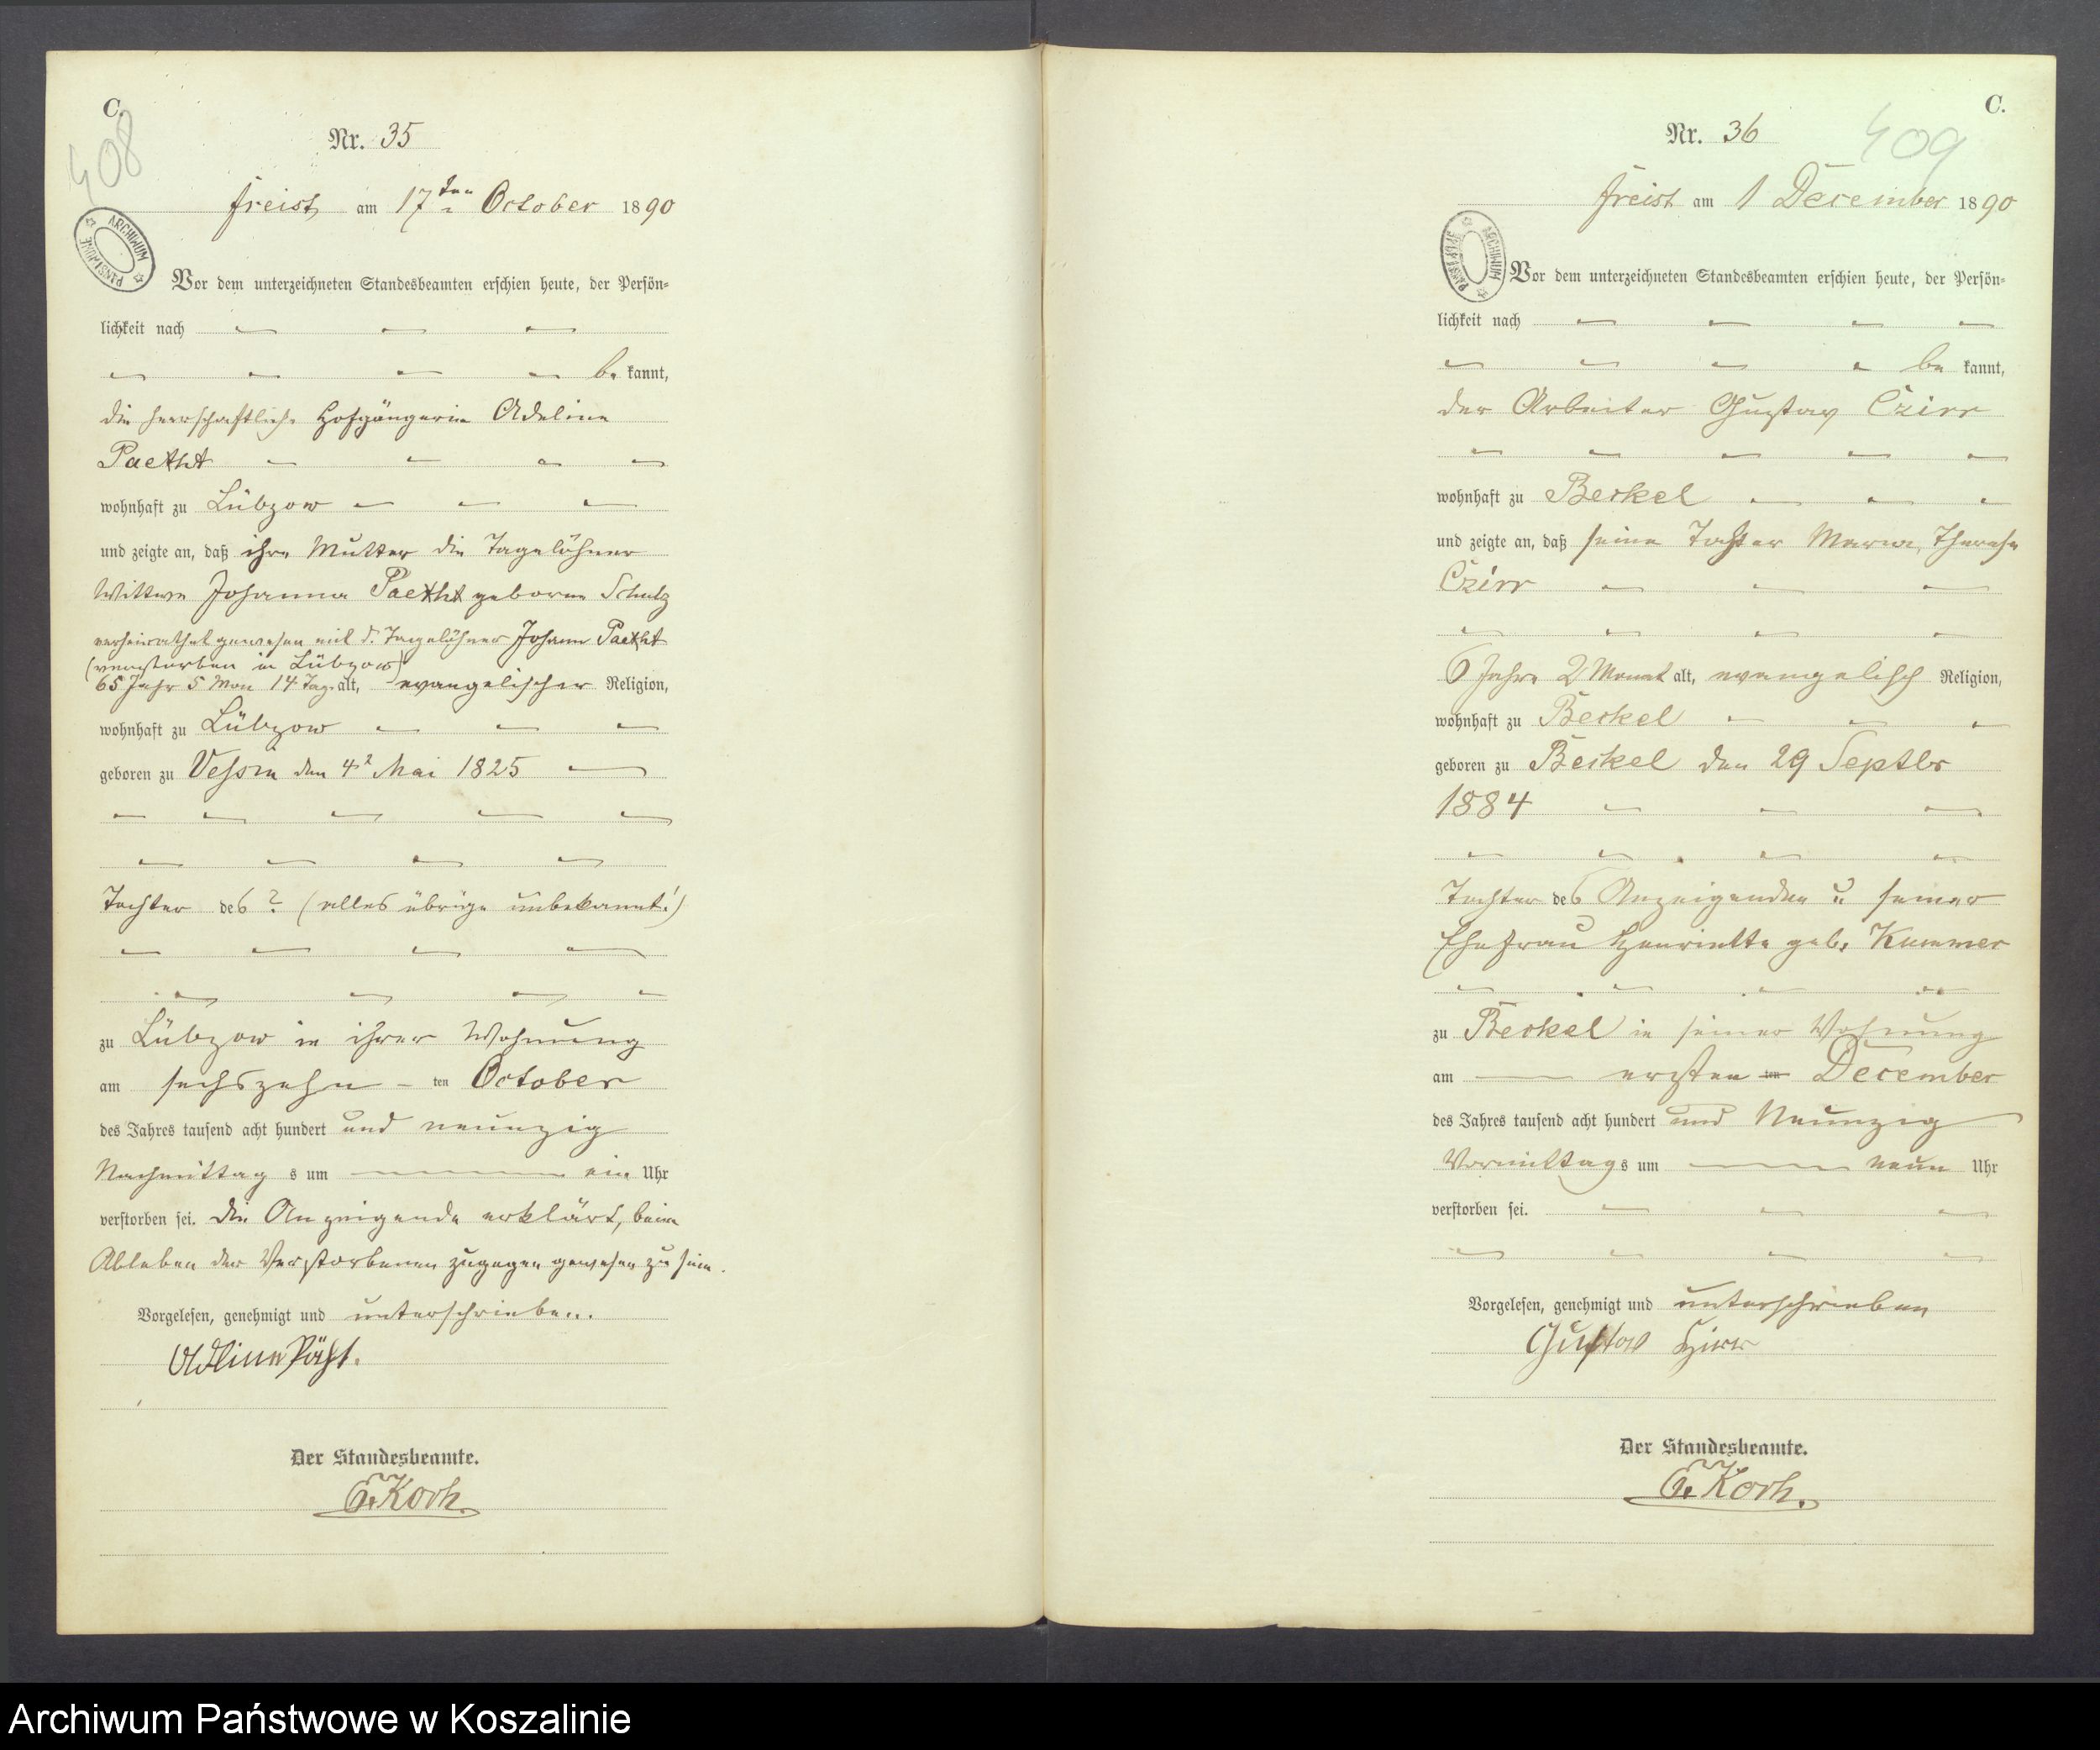 C.
408
Nr. 35
Freist am 17ten October 1890
ARCHIWUM PAŃSTWOWE
Vor dem unterzeichneten Standesbeamten erschien heute, der Persön-
lichkeit nach
be kannt,
die herrschaftliche Hofgängerin Adeline
Paetht
wohnhaft zu Lübzow
und zeigte an, daß ihre Mutter die Tagelöhner
Wittwe Johanna Paetht geborene Schulz
verheirathet gewesen mit d. Tagelöhner Johann Paetht
(verstorben in Lübzow)
65 Jahr 5 Mon 14 Tag. alt, evangelischer Religion,
wohnhaft zu Lübzow
geboren zu Vessin den 4t Mai 1825
Tochter des ? (alles übrige unbekannt!)
zu Lübzow in ihrer Wohnung
am sechszehn - ten October
des Jahres tausend acht hundert und neunzig
Nachmittag s um ein Uhr
verstorben sei. Die Anzeigende erklärt, beim
Ableben der Verstorbenen zugegen gewesen zu sein.
Vorgelesen, genehmigt und unterschrieben.
Adline Päht.
Der Standesbeamte.
E. Koch.
C.
409
Nr. 36
Freist am 1 December 1890
ARCHIWUM PAŃSTWOWE
Vor dem unterzeichneten Standesbeamten erschien heute, der Persön-
lichkeit nach
be kannt,
der Arbeiter Gustav Czirr
wohnhaft zu Beskel
und zeigte an, daß seine Tochter Maria, Therese
Czirr
6 Jahre 2 Monat alt, evangelisch Religion,
wohnhaft zu Beskel
geboren zu Beskel den 29 Septbr
1884
Tochter des Anzeigenden u. seiner
Ehefrau Henriette geb. Kummer
zu Beskel in seiner Wohnung
am ersten ten December
des Jahres tausend acht hundert und Neunzig
Vormittags um neun Uhr
verstorben sei.
Vorgelesen, genehmigt und unterschrieben
Gustav Czirr
Der Standesbeamte.
E. Koch.
Archiwum Państwowe w Koszalinie